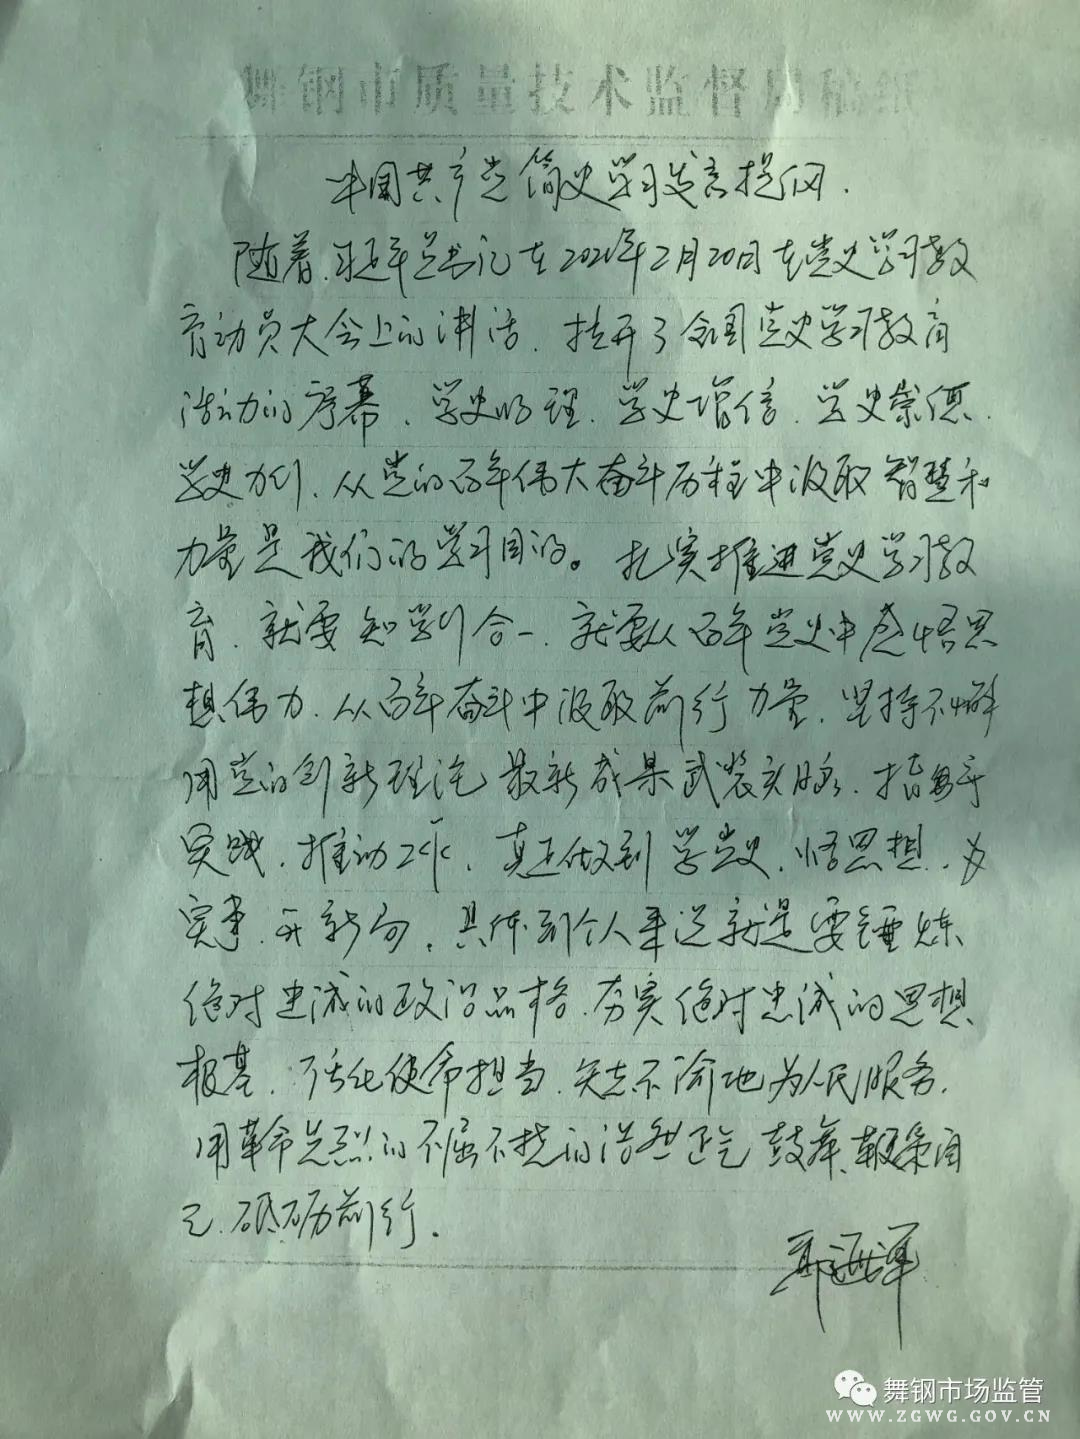 舞钢市质量技术监督局稿纸
中国共产党简史学习发言提纲.
随着习近平总书记在2021年2月20日在党史学习教
育动员大会上的讲话,拉开了全国党史学习教育
活动的序幕,学史明理,学史增信,学史崇德,
学史力行,从党的百年伟大奋斗历程中汲取智慧和
力量是我们的学习目的。扎实推进党史学习教
育,就要知学行合一,就要从百年党史中感悟思
想伟力,从百年奋斗中汲取前行力量,坚持不懈
用党的创新理论最新成果武装头脑,指导
实践,推动工作,真正做到学党史,悟思想,办
实事,开新局,具体到个人来说就是要锤炼
绝对忠诚的政治品格,夯实绝对忠诚的思想
根基,强化使命担当,矢志不渝地为人民服务,
用革命先烈的不屈不挠的浩然正气鼓舞、鞭策自
己,砥砺前行.
舞钢市场监管
WWW.ZGWG.GOV.CN